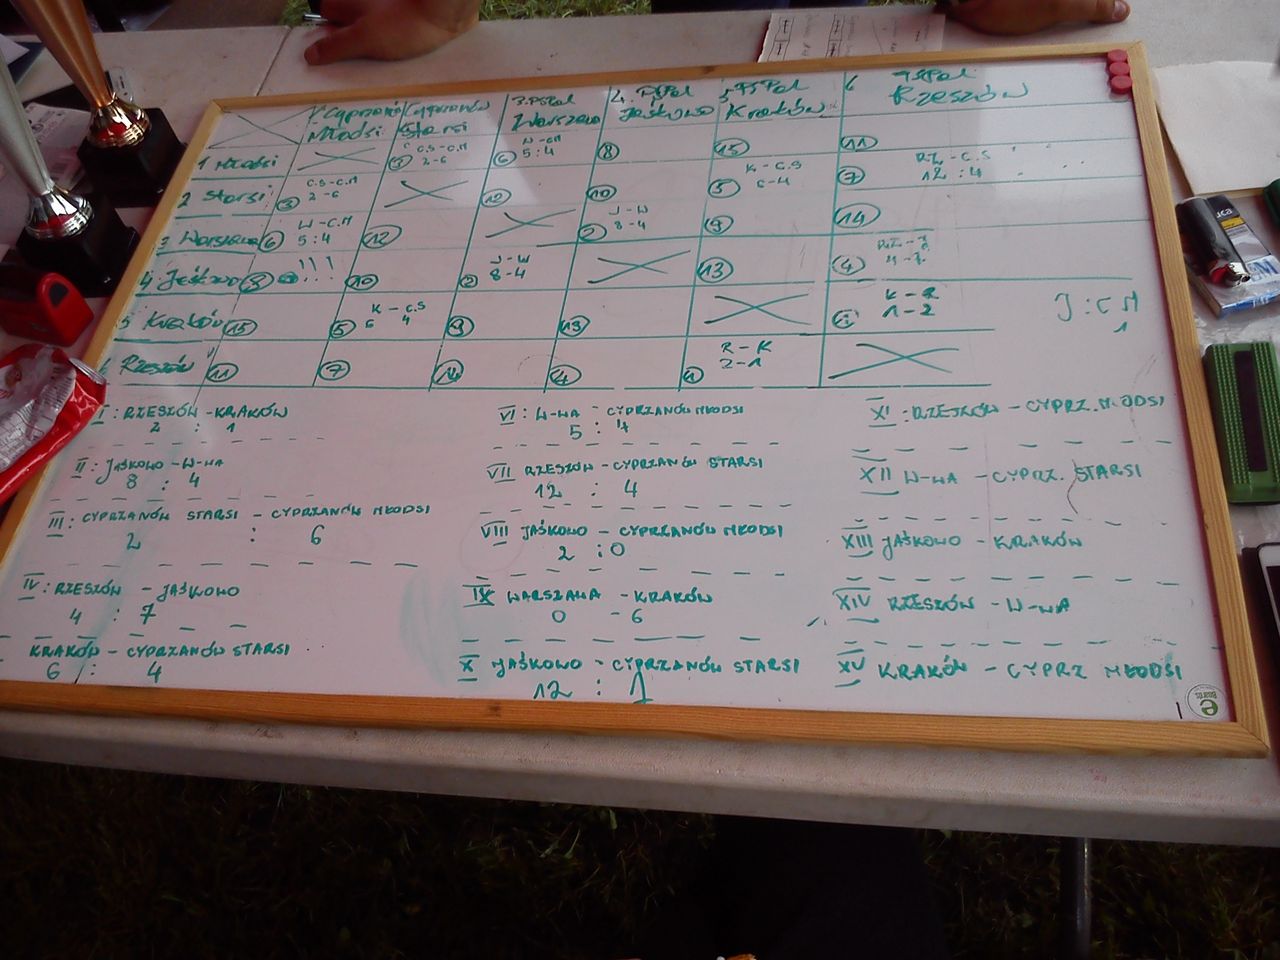 Cyprzanów Cyprzanów 3. PSPoł 4. PSPoł 5 PSPoł 6
Młodsi Starsi Warszawa Jaśkowo Kraków Rzeszów
1 Młodsi ③ C.S-C.M 2-6 ⑥ W-CM 5:4 ⑧ ⑮ ⑪
2 Starsi ③ C.S-C.M 2-6 ⑫ ⑩ ⑤ K-C.S 6-4 ⑦ RZ-C.S 12:4
3 Warszawa ⑥ W-C.M 5:4 ⑫ ② J-W 8-4 ⑨ ⑭
4 Jaśkowo ⑧ !!! ⑩ ② J-W 8-4 ⑬ ④
5 Kraków ⑮ ⑤ K-C.S 6 4 ⑨ ⑬ ① K-R 1-2 J:CM
1
6 Rzeszów ⑪ ⑦ ⑭ ④ ① R-K 2-1
I: RZESZÓW - KRAKÓW
2 : 1
II: JAŚKOWO - W-WA
8 : 4
III: CYPRZANÓW STARSI - CYPRZANÓW MŁODSI
2 : 6
IV: RZESZÓW - JAŚKOWO
4 : 7
KRAKÓW - CYPRZANÓW STARSI
6 : 4
VI: W-WA - CYPRZANÓW MŁODSI
5 : 4
VII RZESZÓW - CYPRZANÓW STARSI
12 : 4
VIII JAŚKOWO - CYPRZANÓW MŁODSI
2 : 0
IX WARSZAWA - KRAKÓW
0 - 6
X JAŚKOWO - CYPRZANÓW STARSI
12 : 1
XI: RZESZÓW - CYPRZ. MŁODSI
XII W-WA - CYPRZ. STARSI
XIII JAŚKOWO - KRAKÓW
XIV RZESZÓW - W-WA
XV KRAKÓW - CYPRZ MŁODSI